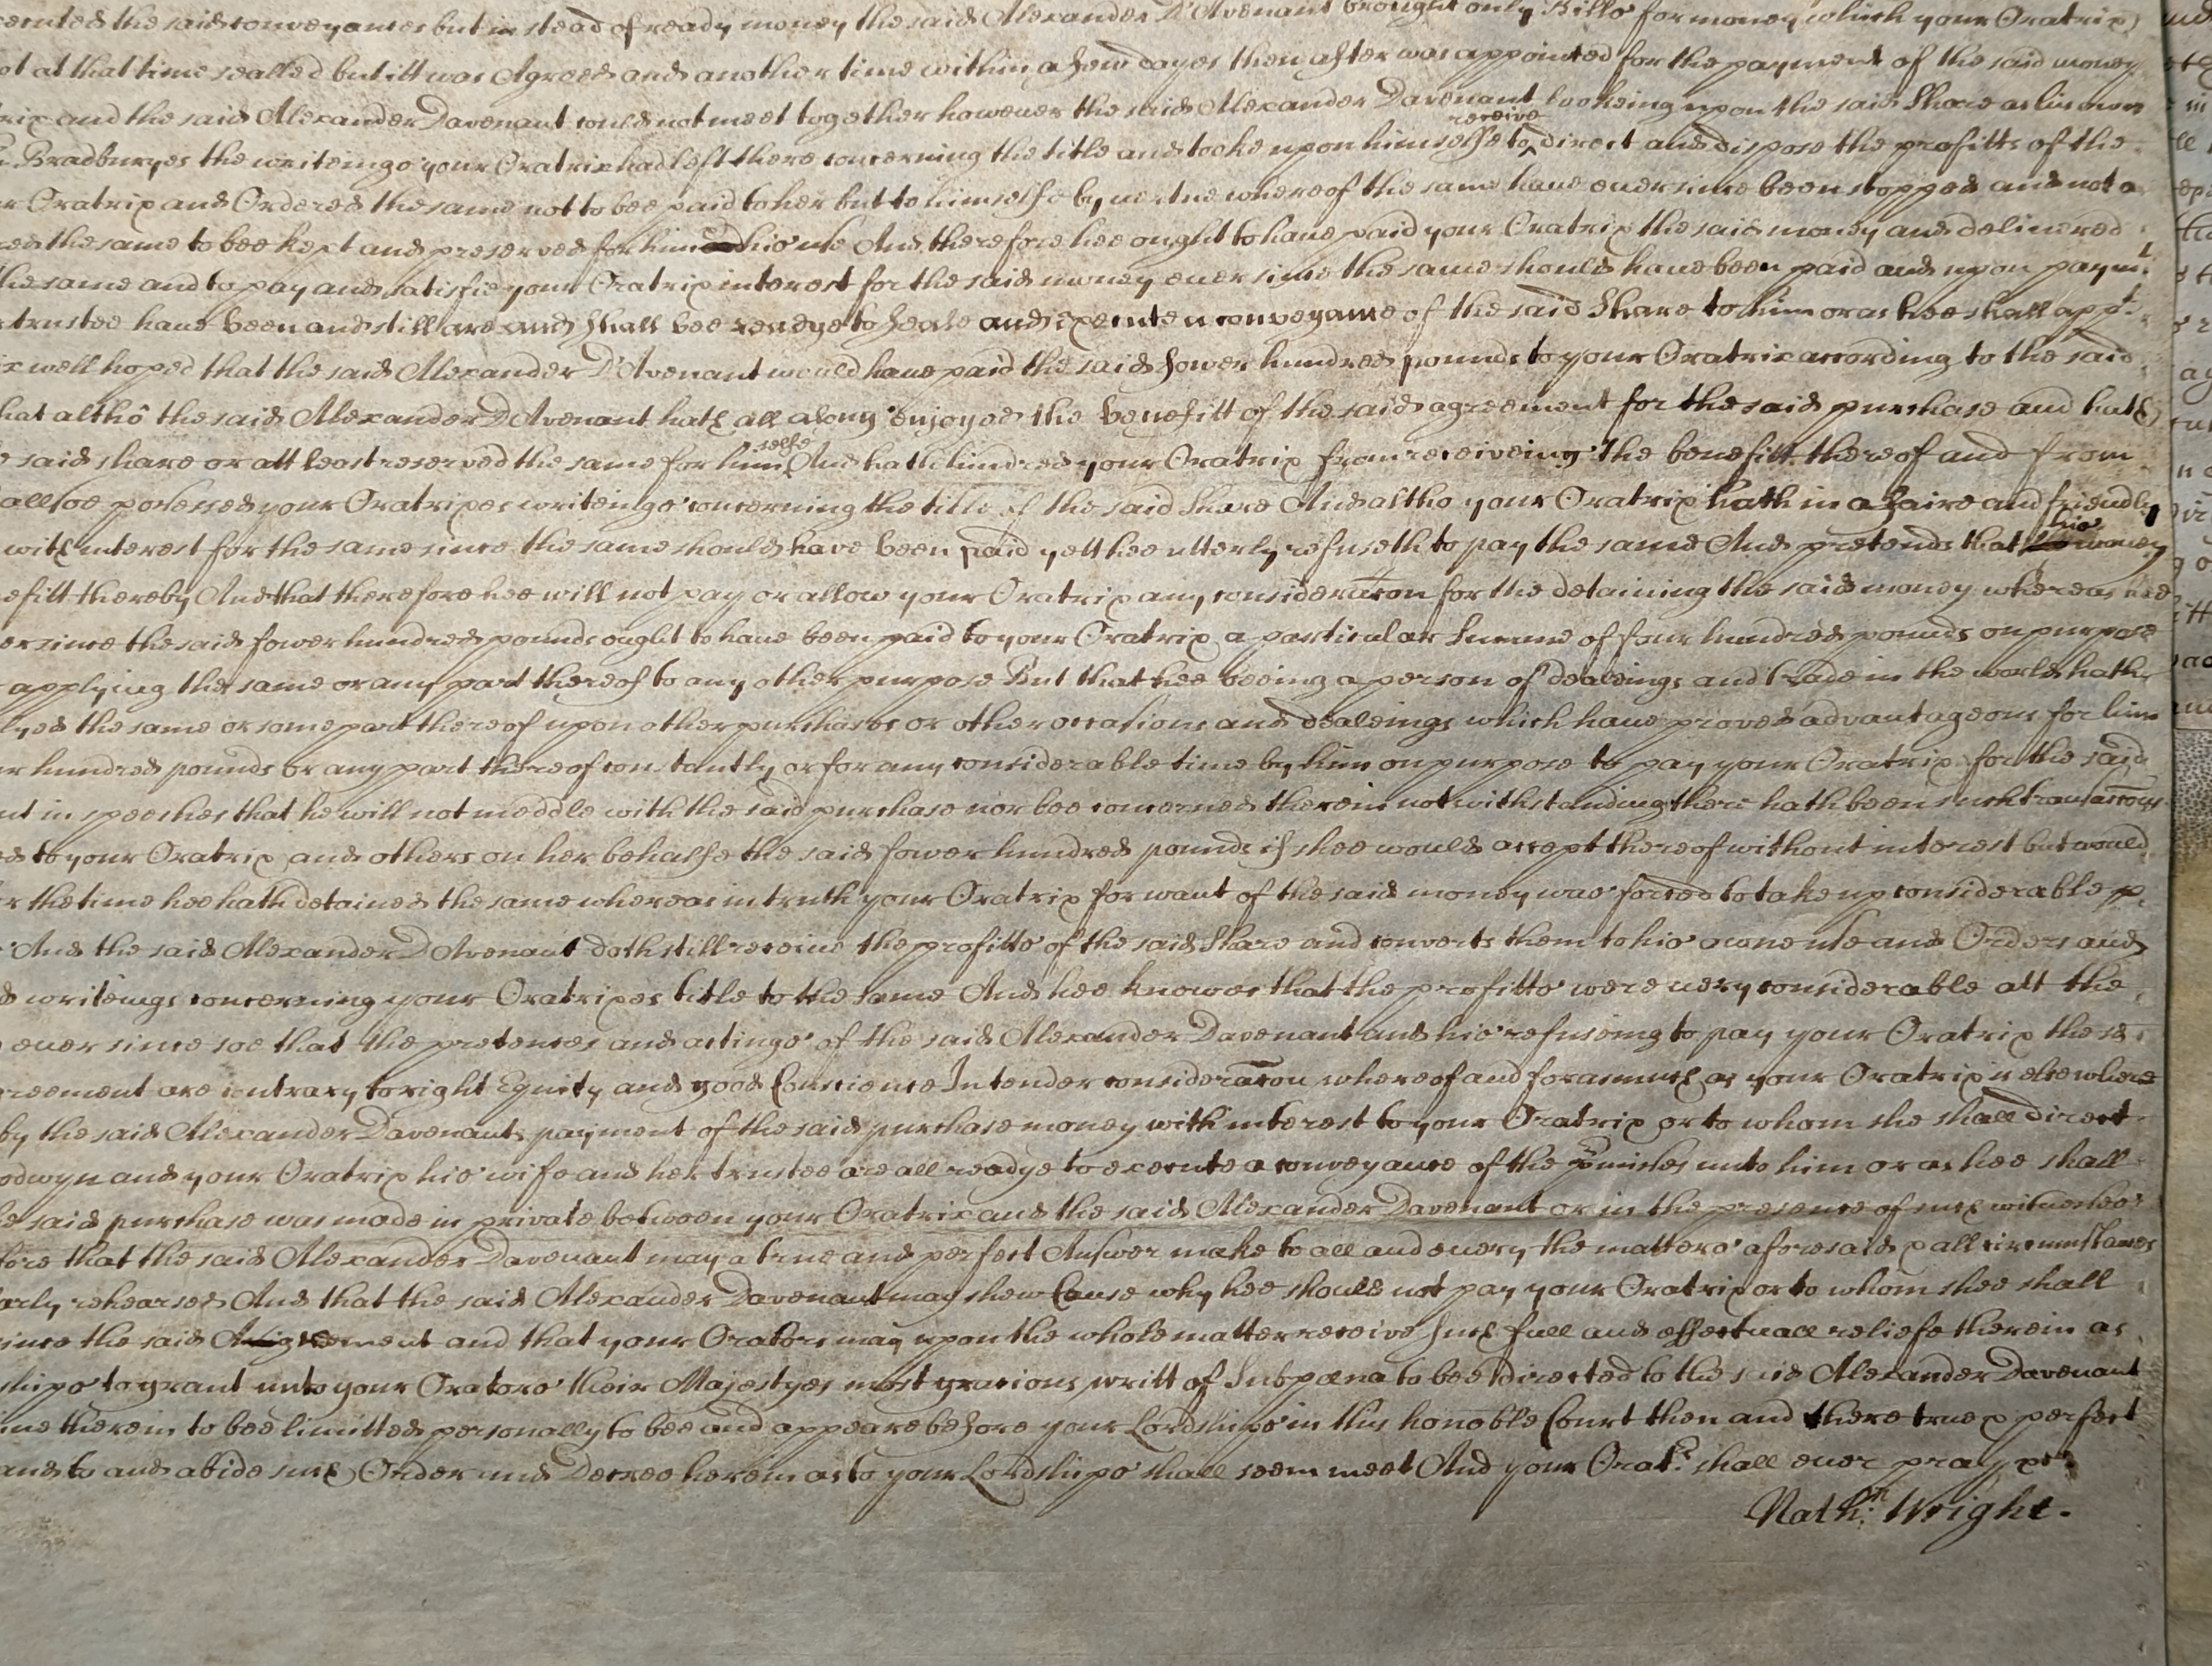 ecuted the said conveyances but in stead of ready money the said Alexander D'Avenant brought only Bills for money which your Oratrix
ot at that time sealled but itt was Agreed and another time within a few dayes then after was appointed for the payment of the said money
rix and the said Alexander Davenant could not meet together however the said Alexander Davenant lookeing upon the said Share as his own
Bradburyes the writeings your Oratrix had left there concerning the title and tooke upon himselfe to receive direct and dispose the profitts of the
r Oratrix and Ordered the same not to bee paid to her but to himselfe by vertue whereof the same have ever since been stopped and not
ed the same to bee kept and preserved for him and his use And therefore hee ought to have paid your Oratrix the said money and delivered
the same and to pay and satisfie your Oratrix interest for the said money ever since the same should have been paid and upon paymt.
trustee have been and still are and shall bee readye to seale and execute a conveyance of the said Share to him or as hee shall appt.
ix well hoped that the said Alexander D'Avenant would have paid the said fower hundred pounds to your Oratrix according to the said
hat althô the said Alexander D Avenant hath all along enjoyed the benefitt of the said agreement for the said purchase and hath
e said share or att least reserved the same for himselfe And hath hindred your Oratrix from receiveing the benefitt thereof and from
allsoe possessed your Oratrixes writeings concerning the title of the said Share And altho your Oratrix hath in a faire and friendly
with interest for the same since the same should have been paid yett hee utterly refuseth to pay the same And pretends that his money
efitt thereby And that therefore hee will not pay or allow your Oratrix any consideracon for the detaining the said money whereas hee
er since the said fower hundred pounds ought to have been paid to your Oratrix a particular Summe of four hundred pounds on purpose
applying the same or any part thereof to any other purpose But that hee beeing a person of dealeings and trade in the world hath
lyed the same or some part thereof upon other purchases or other occasions and dealeings which have proved advantageous for him
ur hundred pounds or any part thereof constantly or for any considerable time by him on purpose to pay your Oratrix for the said
nt in speeches that he will not meddle with the said purchase nor bee concerned therein notwithstanding there hath been such transaccons
ed to your Oratrix and others on her behalfe the said fower hundred pounds if shee would accept thereof without interest but would
r the time hee hath detained the same whereas in truth your Oratrix for want of the said money was forced to take up considerable
And the said Alexander D Avenant doth still receive the profitts of the said Share and converts them to his owne use and Orders and
d writeings concerning your Oratrixes title to the same And hee knowes that the profitts were very considerable att the
ever since soe that the pretences and actings of the said Alexander Davenant and his refuseing to pay your Oratrix the sd
greement are contrary to right Equity and good Conscience In tender consideracon whereof and forasmuch as your Oratrix is elsewhere
by the said Alexander Davenants payment of the said purchase money with interest to your Oratrix or to whom she shall direct
odwyn and your Oratrix his wife and her trustee are all readye to execute a conveyance of the pmisses unto him or as hee shall
he said purchase was made in private between your Oratrix and the said Alexander Davenant or in the presence of such witnesses
fore that the said Alexander Davenant may a true and perfect Answer make to all and every the matters aforesaid & all circumstances
arly rehearsed And that the said Alexander Davenant may shew Cause why hee should not pay your Oratrix or to whom shee shall
since the said Agreement and that your Orators may upon the whole matter receive such full and effectuall reliefe therein as
shipps to grant unto your Orators their Majestyes most gracious writt of Subpœna to bee directed to the said Alexander Davenant
ime therein to bee limitted personally to bee and appeare before your Lordshipps in this honoble Court then and there true & perfect
and to and abide such Order and Decree herein as to your Lordshipps shall seem meet And your Oratrs. shall ever pray &c.
Nathn. Wright.